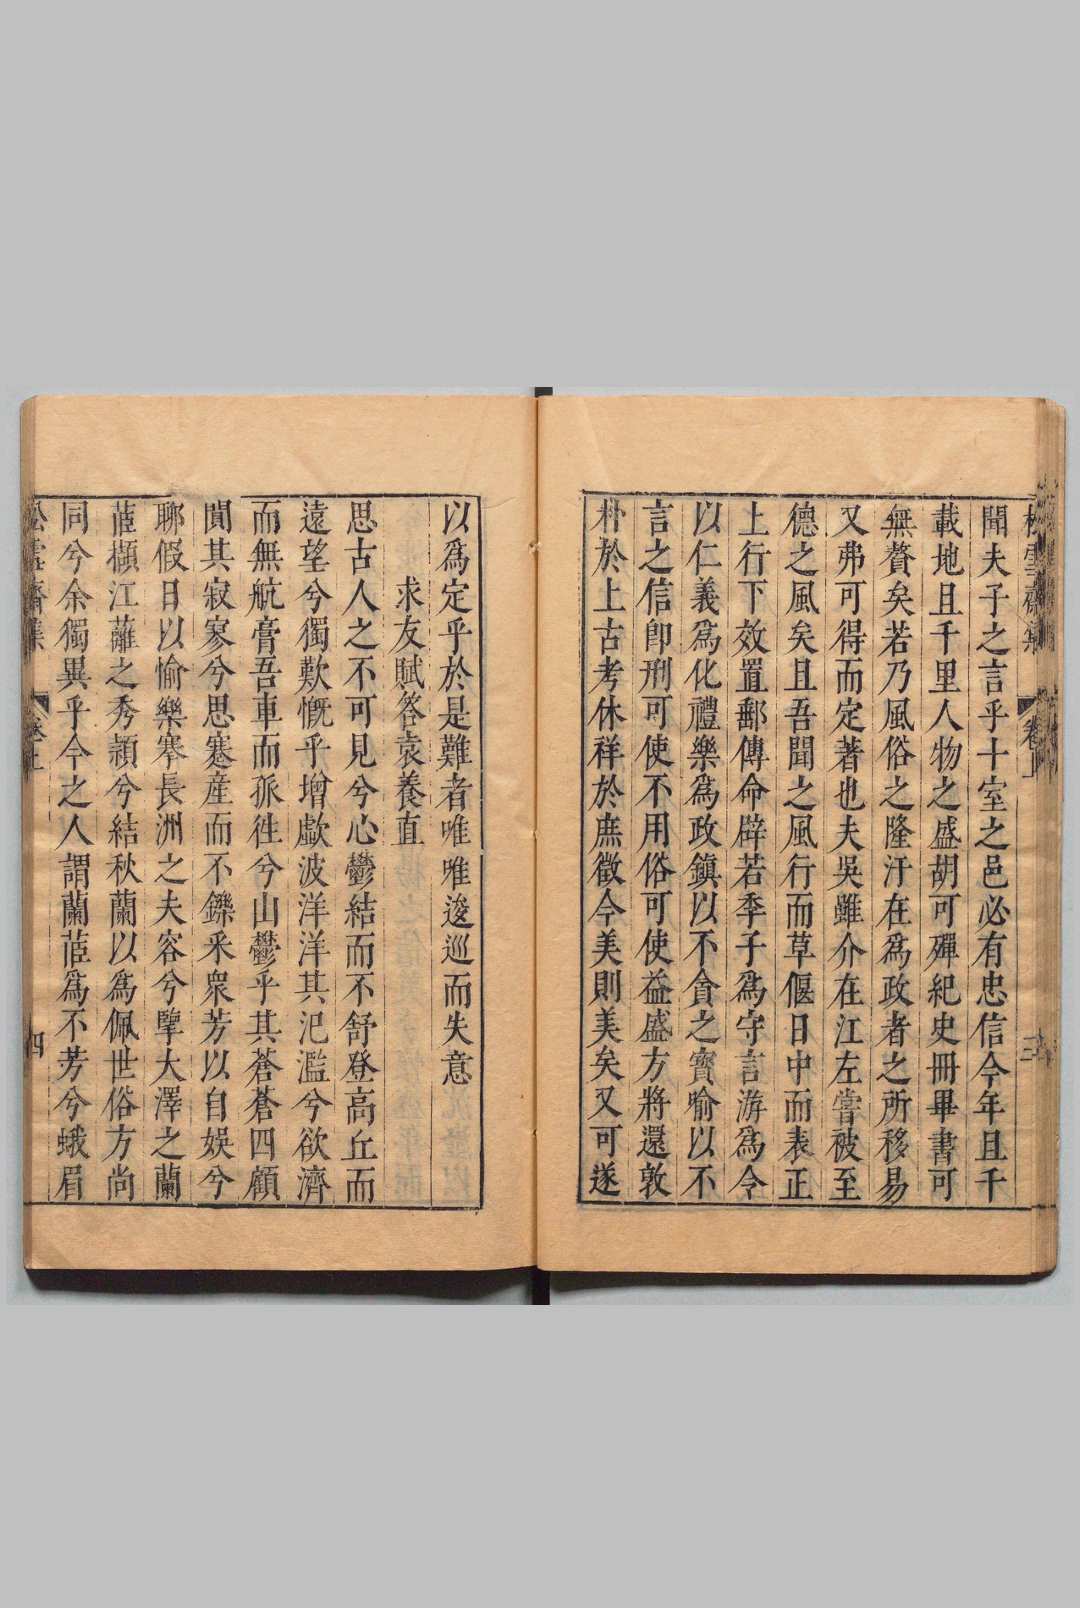 聞夫子之言乎十室之邑必有忠信今年且千
載地且千里人物之盛胡可殫紀史冊畢書可
無贅矣若乃風俗之隆汙在爲政者之所移易
又弗可得而定著也夫吳雖介在江左嘗被至
德之風矣且吾聞之風行而草偃日中而表正
上行下效置郵傳命辟若季子爲守言游爲令
以仁義爲化禮樂爲政鎮以不貪之寶喻以不
言之信卽刑可使不用俗可使益盛方將還敦
朴於上古考休祥於庶徵今美則美矣又可遂
以爲定乎於是難者唯唯逡巡而失意
求友賦答袁養直
思古人之不可見兮心鬱結而不舒登高丘而
遠望兮獨歎慨乎增歔波洋洋其汜濫兮欲濟
而無航膏吾車而孤徃兮山鬱乎其蒼蒼四顧
闃其寂寥兮思蹇産而不鑠釆衆芳以自娛兮
聊假日以愉樂搴長洲之夫容兮擥大澤之蘭
茝擷江蘺之秀頴兮結秋蘭以爲佩世俗方尚
同兮余獨異乎今之人謂蘭茝爲不芳兮蛾眉
松雪齋集 卷上 四